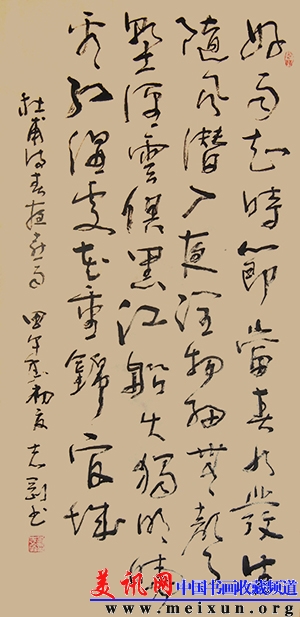 好雨知時節當春乃發生
隨風潛入夜潤物細無聲
野徑雲俱黑江船火獨明曉
看紅濕處花重錦官城
杜甫詩春夜喜雨 甲午 初夏 志剛書
美讯网 中国书画收藏频道
www.meixun.org